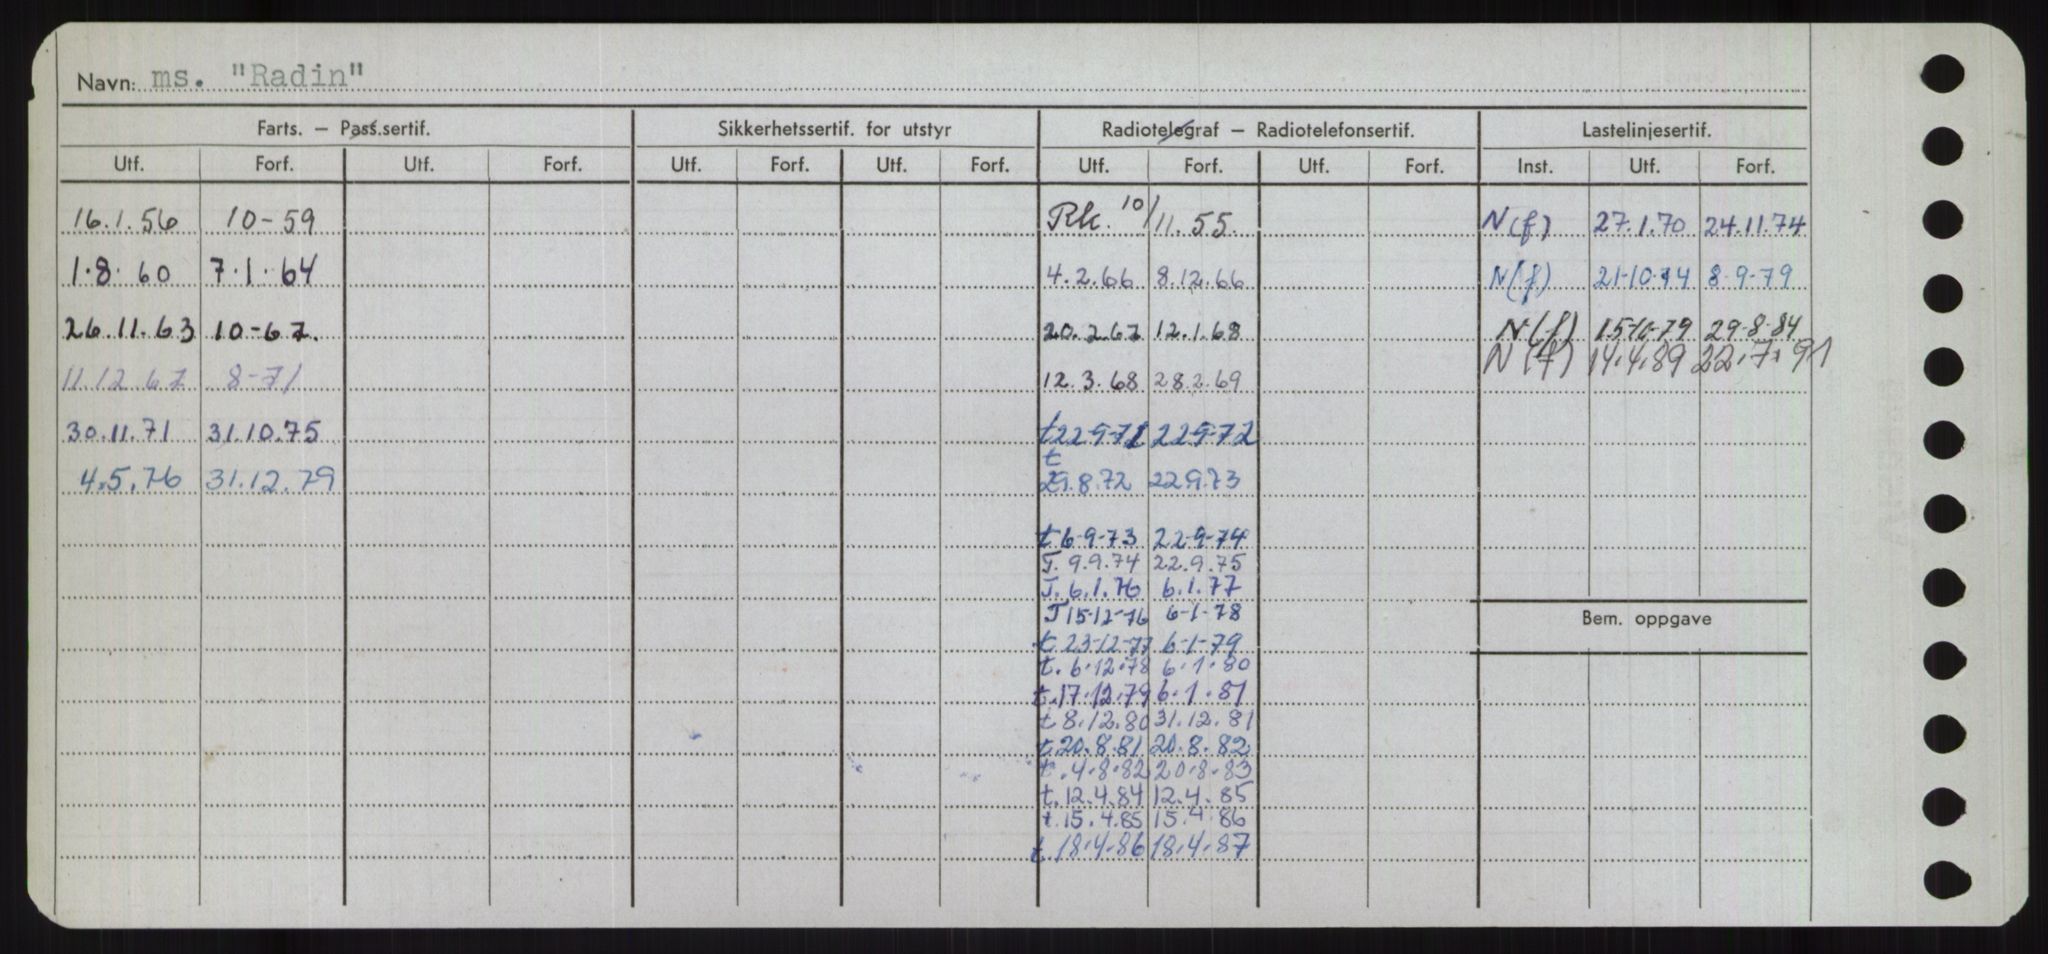 Navn: ms. "Radin"
Farts. – Pass.sertif. Sikkerhetssertif. for utstyr Radiotelegraf – Radiotelefonsertif. Lastelinjesertif.
Utf. Forf. Utf. Forf. Utf. Forf. Utf. Forf. Utf. Forf. Utf. Forf. Inst. Utf. Forf.
16.1.56 10-59 Rk. 10/11.55. N(f) 27.1.70 24.11.74
1.8.60 7.1.64 4.2.66 8.12.66 N(f) 21-10-74 8-9-79
26.11.63 10-67. 20.2.67 12.1.68 N(f) 15-10-79 29-8-84
N(f) 14.4.89 22.7.91
11.12.67 8-71 12.3.68 28.2.69
30.11.71 31.10.75 t22-9-71 22-9-72
t
4.5.76 31.12.79 29.8.72 22.9.73
t.6-9-73 22-9-74
T. 9.9.74 22.9.75
T. 6.1.76 6.1.77
T 15-12-76 6-1-78
Bem. oppgave
t 23-12-77 6-1-79
t. 6.12.78 6.1.80
t.17.12.79 6.1.81
t 8.12.80 31.12.81
t.20.8.81 20.8.82
t.4.8.82 20.8.83
t.12.4.84 12.4.85
t.15.4.85 15.4.86
t.18.4.86 18.4.87